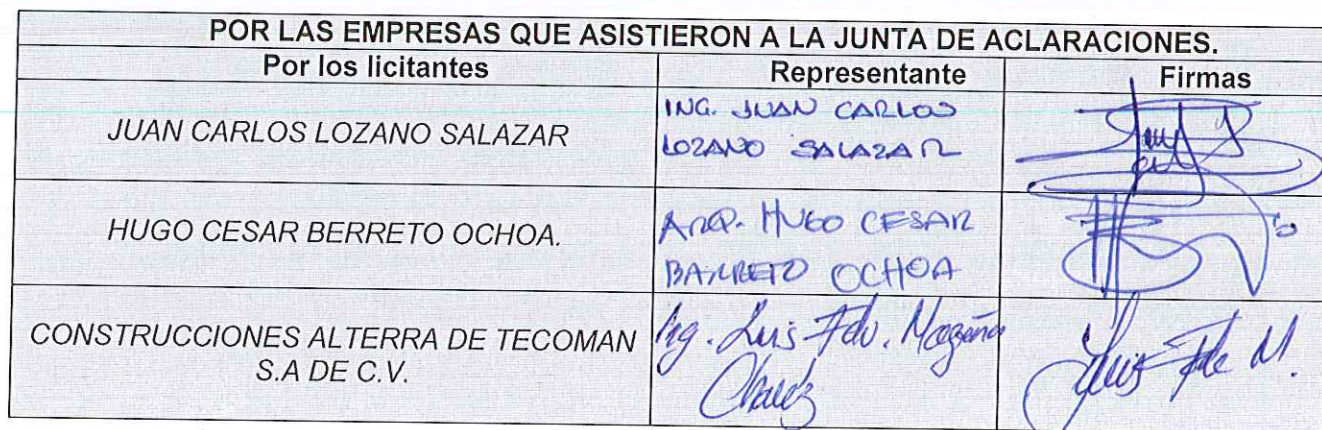 POR LAS EMPRESAS QUE ASISTIERON A LA JUNTA DE ACLARACIONES.
Por los licitantes Representante Firmas
JUAN CARLOS LOZANO SALAZAR
ING. JUAN CARLOS
LOZANO SALAZAR
HUGO CESAR BERRETO OCHOA.
ARQ. HUGO CESAR
BARRETO OCHOA
CONSTRUCCIONES ALTERRA DE TECOMAN
S.A DE C.V.
Ing. Luis Fdo.
Chavez
Luis Fdo M.